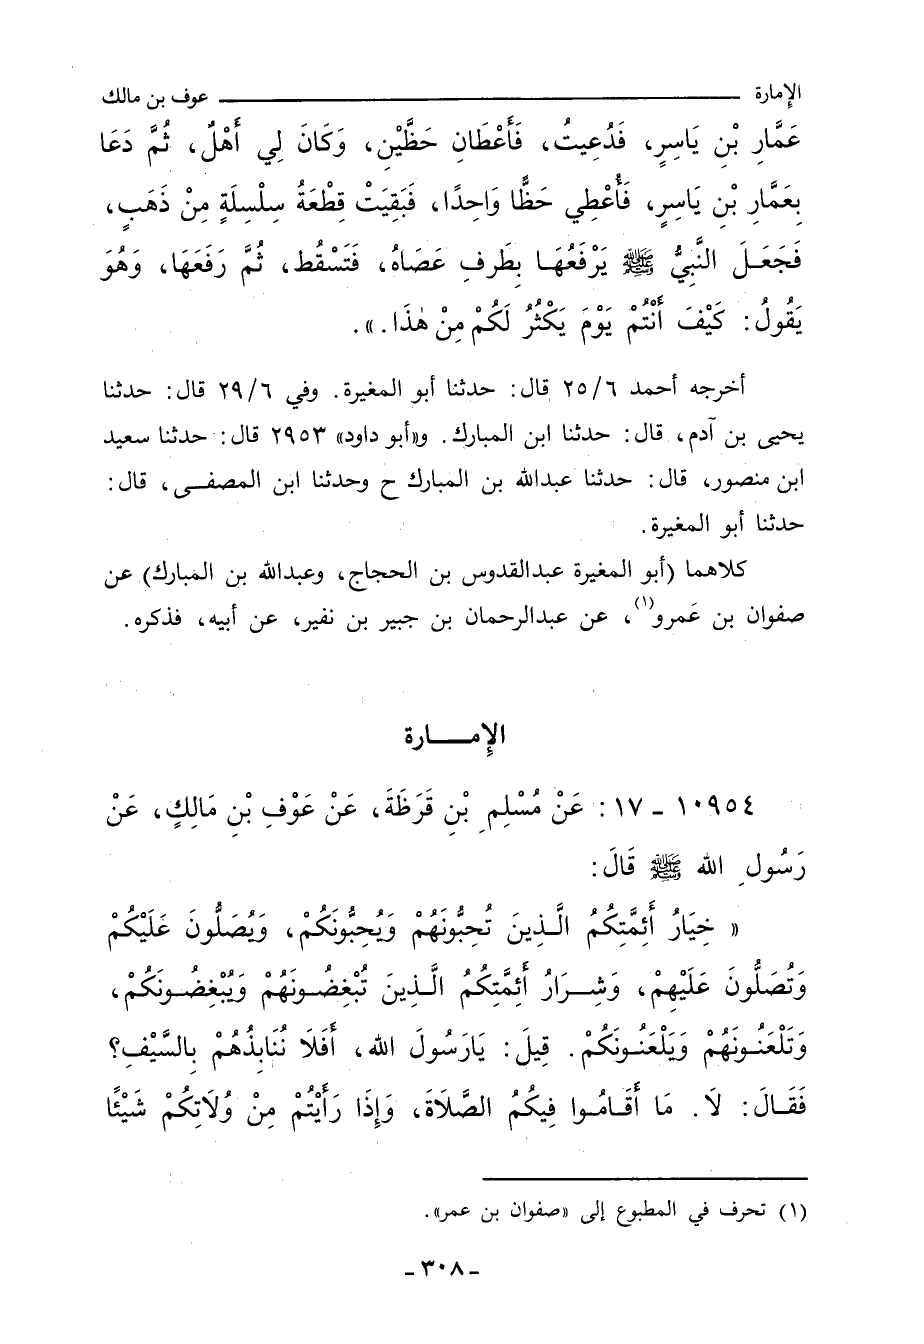 الإمارة ــــــــــــــــــــ عوف بن مالك
عَمَّارِ بْنِ يَاسِرٍ، فَدُعِيتُ، فَأَعْطَانِ حَظَّيْنِ، وَكَانَ لِي أَهْلٌ، ثُمَّ دَعَا
بِعَمَّارِ بْنِ يَاسِرٍ، فَأُعْطِي حَظًّا وَاحِدًا، فَبَقِيَتْ قِطْعَةُ سِلْسِلَةٍ مِنْ ذَهَبٍ،
فَجَعَلَ النَّبِيُّ ﷺ يَرْفَعُهَا بِطَرفِ عَصَاهُ، فَتَسْقُط، ثُمَّ رَفَعَهَا، وَهُوَ
يَقُولُ: كَيْفَ أَنْتُمْ يَوْمَ يَكْثُرُ لَكُمْ مِنْ هٰذَا.».
أخرجه أحمد ٢٥/٦ قال: حدثنا أبو المغيرة. وفي ٢٩/٦ قال: حدثنا
يحيى بن آدم، قال: حدثنا ابن المبارك. و«أبو داود» ٢٩٥٣ قال: حدثنا سعيد
ابن منصور، قال: حدثنا عبدالله بن المبارك ح وحدثنا ابن المصفى، قال:
حدثنا أبو المغيرة.
كلاهما (أبو المغيرة عبدالقدوس بن الحجاج، وعبدالله بن المبارك) عن
صفوان بن عَمرو(١)، عن عبدالرحمان بن جبير بن نفير، عن أبيه، فذكره.
الإمـــارة
١٠٩٥٤ ـ ١٧: عَنْ مُسْلِمِ بْنِ قَرَظَةَ، عَنْ عَوْفِ بْنِ مَالِكٍ، عَنْ
رَسُولِ الله ﷺ قَالَ:
« خِيَارُ أَئِمَّتِكُمُ الَّذِينَ تُحِبُّونَهُمْ وَيُحِبُّونَكُمْ، وَيُصَلُّونَ عَلَيْكُمْ
وَتُصَلُّونَ عَلَيْهِمْ، وَشِرَارُ أَئِمَّتِكُمُ الَّذِينَ تُبْغِضُونَهُمْ وَيُبْغِضُونَكُمْ،
وَتَلْعَنُونَهُمْ وَيَلْعَنُونَكُمْ. قِيلَ: يَارَسُولَ الله، أَفَلَا نُنَابِذُهُمْ بِالسَّيْفِ؟
فَقَالَ: لَا. مَا أَقَامُوا فِيكُمُ الصَّلَاةَ، وَإِذَا رَأَيْتُمْ مِنْ وُلَاتِكُمْ شَيْئًا
(١) تحرف في المطبوع إلى «صفوان بن عمر».
ـ ٣٠٨ ـ